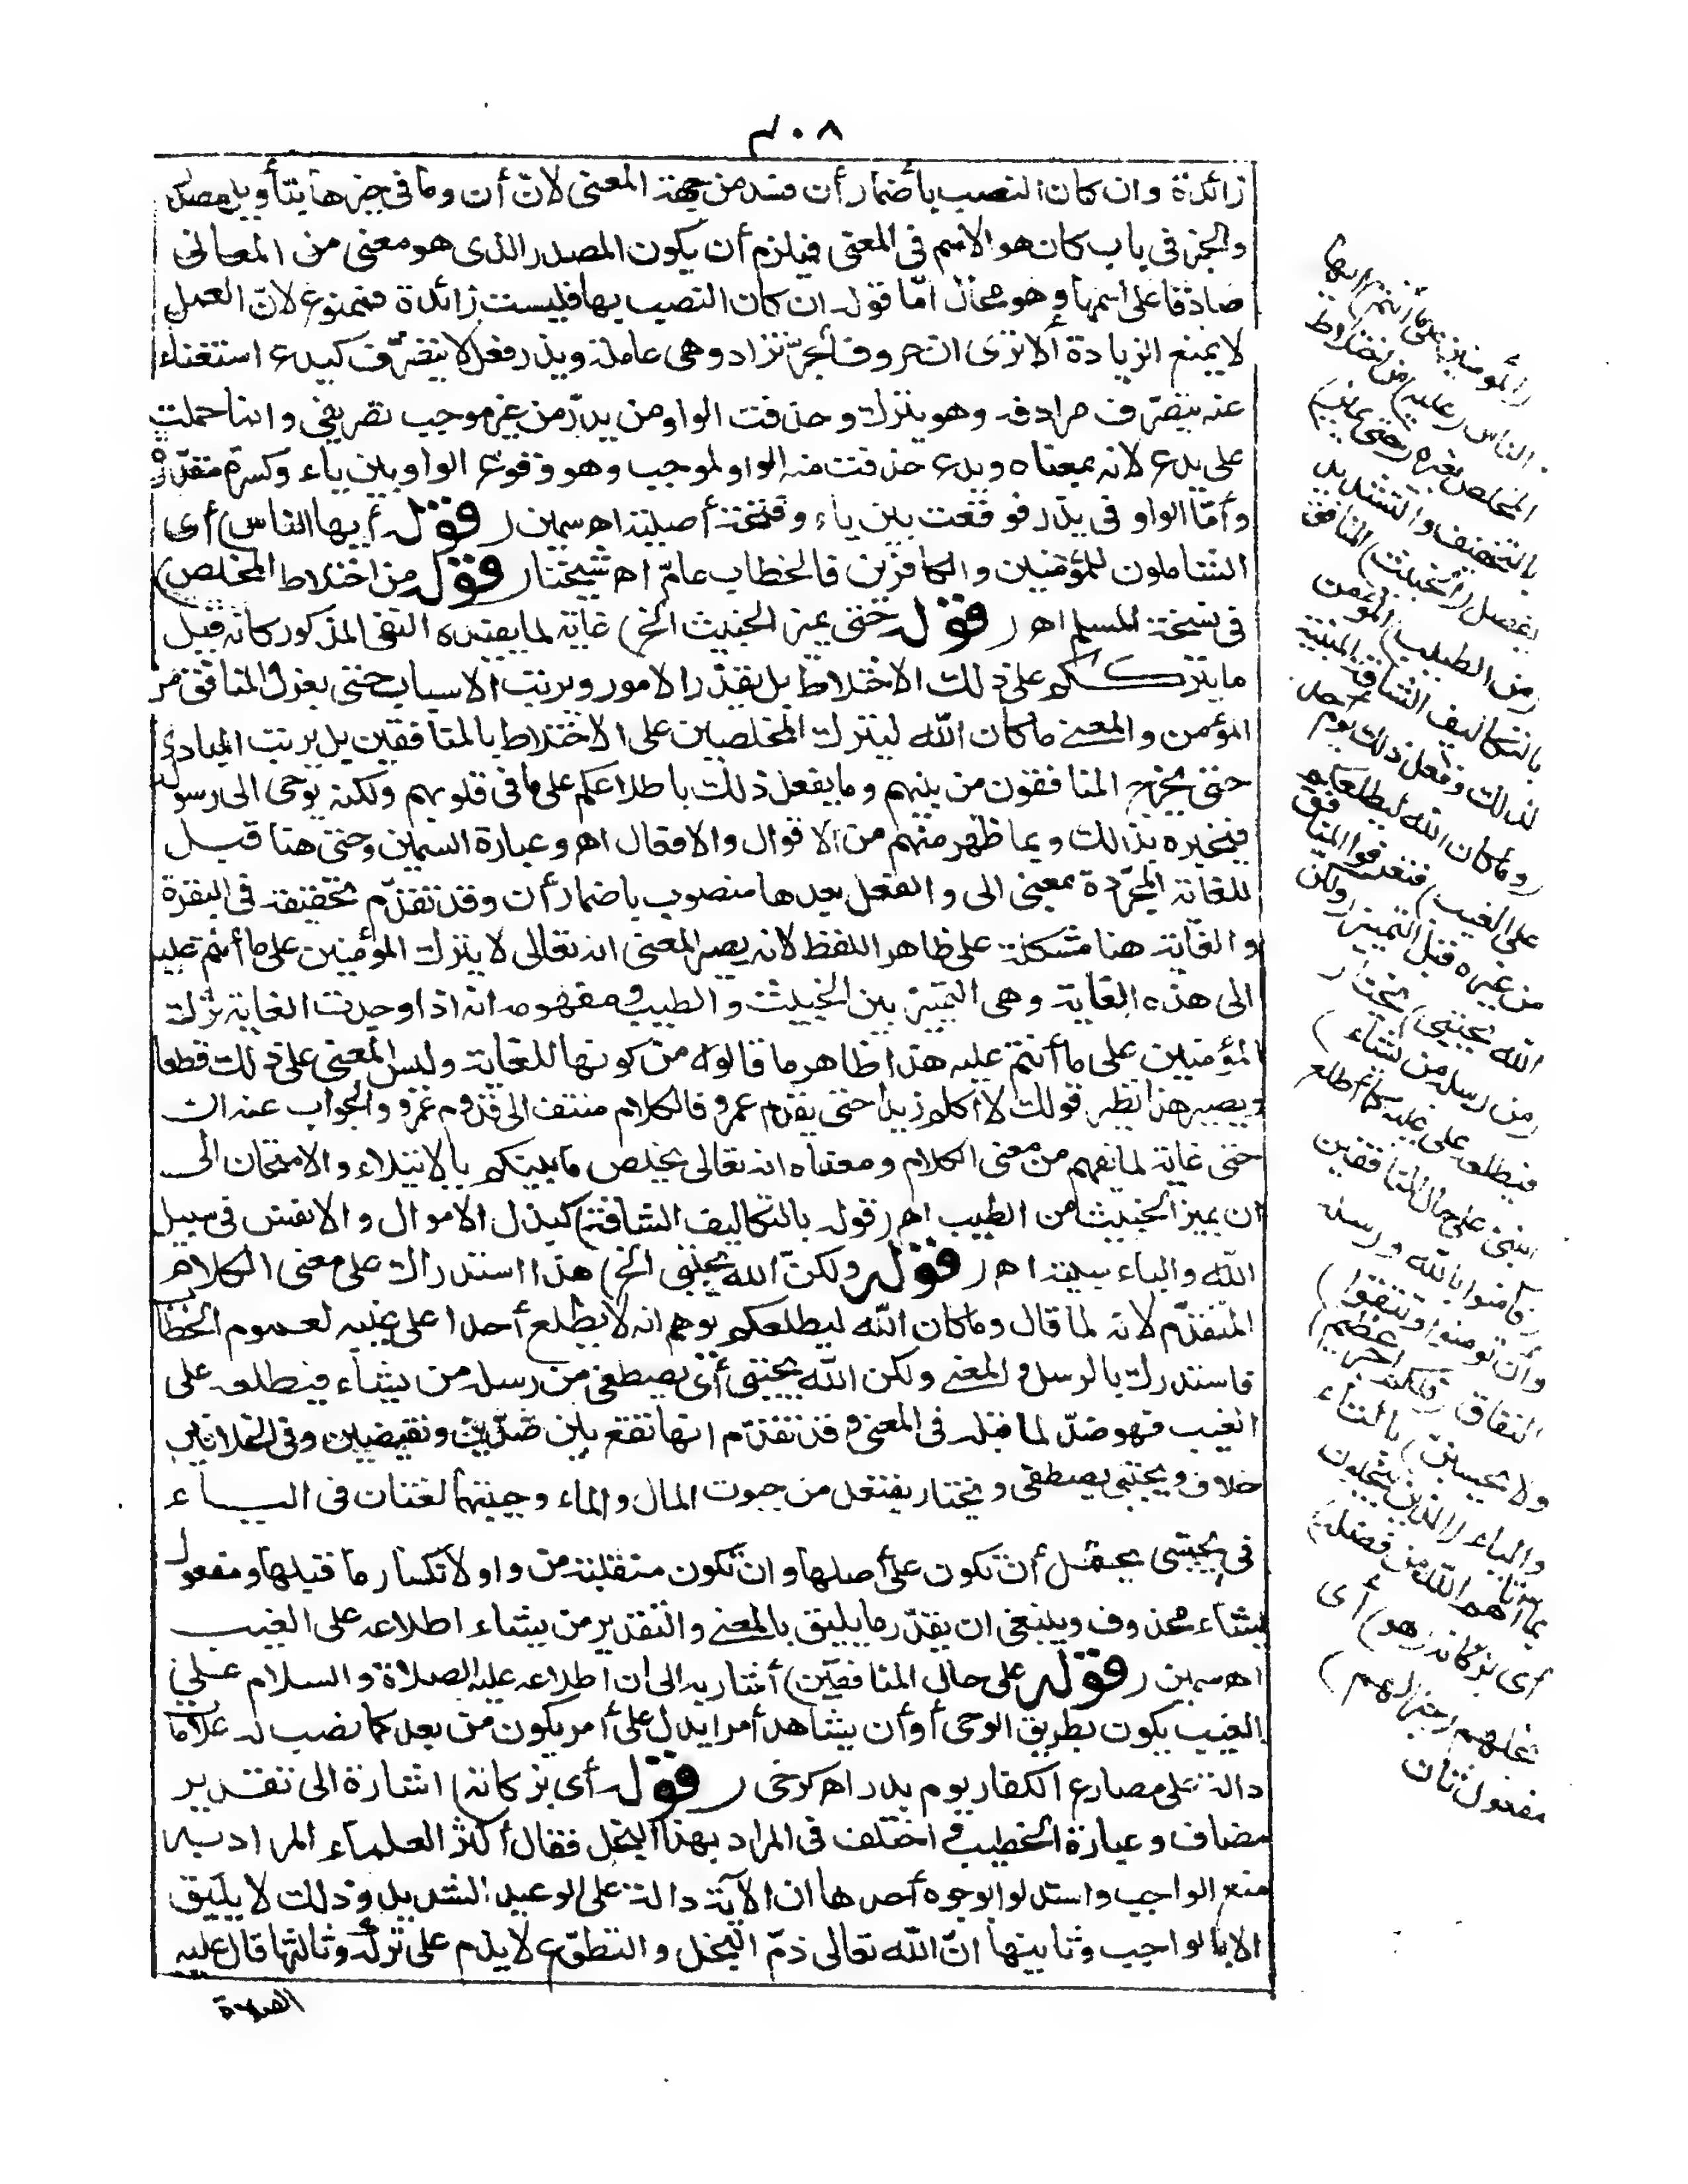 ٤٠٨
زائدة وان كان النصب بأضمار أن فسد من جهة المعنى لانّ أن وما فى حيزها بتأويل مصدر
والخبر فى باب كان هو الاسم فى المعنى فيلزم أن يكون المصدر الذى هو معنى من المعانى
صادقا على اسمها وهو محال امّا قوله ان كان النصب بها فليست زائدة فممنوع لانّ العمل
لا يمنع الزيادة ألا ترى ان حروف الجرّ تزاد وهى عاملة ويذر فعل لا يتصرّف كيدع استغناء
عنه بتصرّف مرادفه وهو يترك وحذفت الواو من يذر من غير موجب تصريفى وانما حملت
على يدع لانه بمعناه ويدع حذفت منه الواو لموجب وهو وقوع الواو بين ياء وكسرة مقدّرة
وأمّا الواو فى يذر فوقعت بين ياء وفتحة أصلية اه سمين (قوله أيها الناس) أى
الشاملون للمؤمنين والكافرين فالخطاب عامّ اه شيخنا (قوله من اختلاط المخلص)
فى نسخة المسلم اه (قوله حتى يميز الخبيث الخ) غاية لما يفيده النفى المذكور كانه قيل
ما يترككم على ذلك الاختلاط بل يقدّر الامور ويرتب الاسباب حتى يعزل المنافق من
المؤمن والمعنى ما كان الله ليترك المخلصين على الاختلاط بالمنافقين بل يرتب المبادى
حتى يخرج المنافقون من بينهم وما يفعل ذلك باطلاعكم على ما فى قلوبهم ولكنه يوحى الى رسوله
فيخبره بذالك وبما ظهر منهم من الاقوال والافعال اه وعبارة السمين وحتى هنا قيل
للغاية المجرّدة بمعنى الى والفعل بعدها منصوب باضمار أن وقد تقدّم تحقيقه فى البقرة
والغاية هنا مشكلة على ظاهر اللفظ لانه يصير المعنى انه تعالى لا يترك المؤمنين على ما أنتم عليه
الى هذه الغاية وهى التمييز بين الخبيث والطيب ومفهومه انه اذا وجدت الغاية ترك
المؤمنين على ما أنتم عليه هذا ظاهر ما قالوه من كونها للغاية وليس المعنى على ذلك قطعا
ويصير هذا نظير قولك لا أكلم زيدا حتى يقدم عمرو فالكلام منتف الى قدوم عمرو والجواب عنه ان
حتى غاية لما يفهم من معنى الكلام ومعناه انه تعالى يخلص ما بينكم بالابتلاء والامتحان الى
ان يميز الخبيث من الطيب اه (قوله بالتكاليف الشاقة) كبذل الاموال والانفس فى سبيل
الله والباء سببية اه (قوله ولكنّ الله يجتبى الخ) هذا استدراك على معنى الكلام
المتقدّم لانه لما قال وما كان الله ليطلعكم يوهم انه لا يطلع أحدا على غيبه لعموم الخطاب
فاستدرك بالرسل والمعنى ولكن الله يجتبى أى يصطفى من رسله من يشاء فيطلعه على
الغيب فهو ضدّ لما قبله فى المعنى وقد تقدّم انها تقع بين ضدّين ونقيضين وفى الخلافين
خلاف ويجتبى يصطفى ويختار يفتعل من جبوت المال والماء وجبيتهما لغتان فى الياء
فى يجتبى يحتمل أن تكون على أصلها وان تكون منقلبة من واو لانكسار ما قبلها ومفعول
يشاء محذوف وينبغى ان يقدّر ما يليق بالمعنى والتقدير من يشاء اطلاعه على الغيب
اه سمين (قوله على حال المنافقين) أشار به الى ان اطلاعه عليه الصلاة والسلام على
الغيب يكون بطريق الوحى أو أن يشاهد أمرا يدل على أمر يكون من بعد كما نصب له علاما
دالة على مصارع الكفار يوم بدر اه كرخى (قوله أى بزكاته) اشارة الى تقدير
مضاف وعبارة الخطيب اختلف فى المراد بهذا البخل فقال أكثر العلماء المراد به
منع الواجب واستدلوا لوجوه أحدها ان الآية دالة على الوعيد الشديد وذلك لا يليق
الا بالواجب وثانيها انّ الله تعالى ذمّ البخل والتطوّع لا يذم على تركه وثالثها قال عليه
الصلاة
(المؤمنين على ما أنتم) أيها
الناس (عليه) من اختلاط
المخلص بغيره (حتى يميز)
بالتخفيف والتشديد
يفصل (الخبيث) المنافق
(من الطيب) المؤمن
بالتكاليف الشاقة المبينة
لذلك وفعل ذلك يوم أحد
(وما كان الله ليطلعكم
على الغيب) فتعرفوا المنافق
من غيره قبل التمييز (ولكنّ
الله يجتبى) يختار
(من رسله من يشاء)
فيطلعه على غيبه كما أطلع
النبى على حال المنافقين
(فآمنوا بالله ورسله
وان تؤمنوا وتتقوا)
النفاق (فلكم أجر عظيم)
ولا تحسبنّ) بالتاء
والياء (الذين يبخلون
بما آتاهم الله من فضله)
أى بزكاته (هو) أى
بخلهم (خيرا لهم)
مفعول ثان